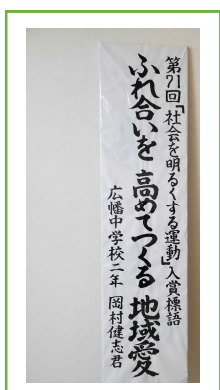 第71回「社会を明るくする運動」入賞標語
ふれ合いを 高めてつくる 地域愛
広幡中学校二年 岡村健志君